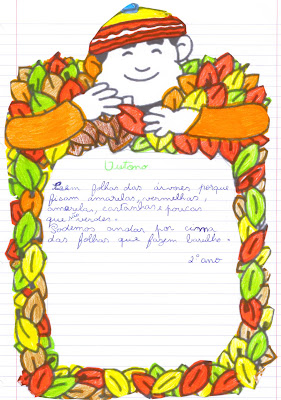 Outono
Caem folhas das árvores porque
ficam amarelas, vermelhas,
amarelas, castanhas e poucas
que são verdes.
Podemos andar por cima
das folhas que fazem barulho.
2º ano